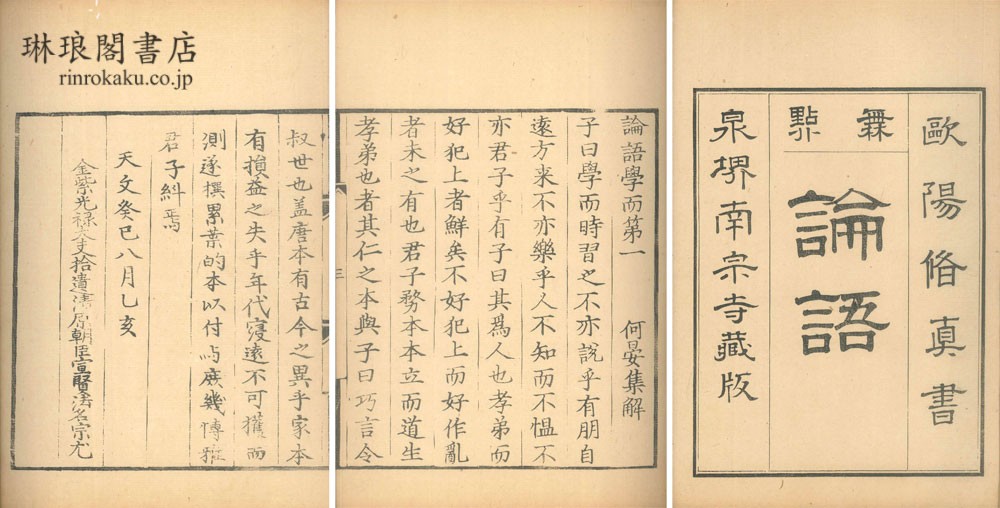 歐陽脩真書
無點
論語
泉堺南宗寺藏版
論語學而第一　何晏集解
子曰學而時習之不亦說乎有朋自
遠方来不亦樂乎人不知而不慍不
亦君子乎有子曰其為人也孝弟而
好犯上者鮮矣不好犯上而好作亂
者未之有也君子務本本立而道生
孝弟也者其仁之本與子曰巧言令
三
叔世也盖唐本有古今之異乎家本
有損益之失乎年代寖遠不可獲而
測遂撰累葉的本以付与庶幾博雅
君子糾焉
天文癸巳八月乙亥
金紫光祿大夫拾遺清原朝臣宣賢法名宗尤
琳琅閣書店
rinrokaku.co.jp